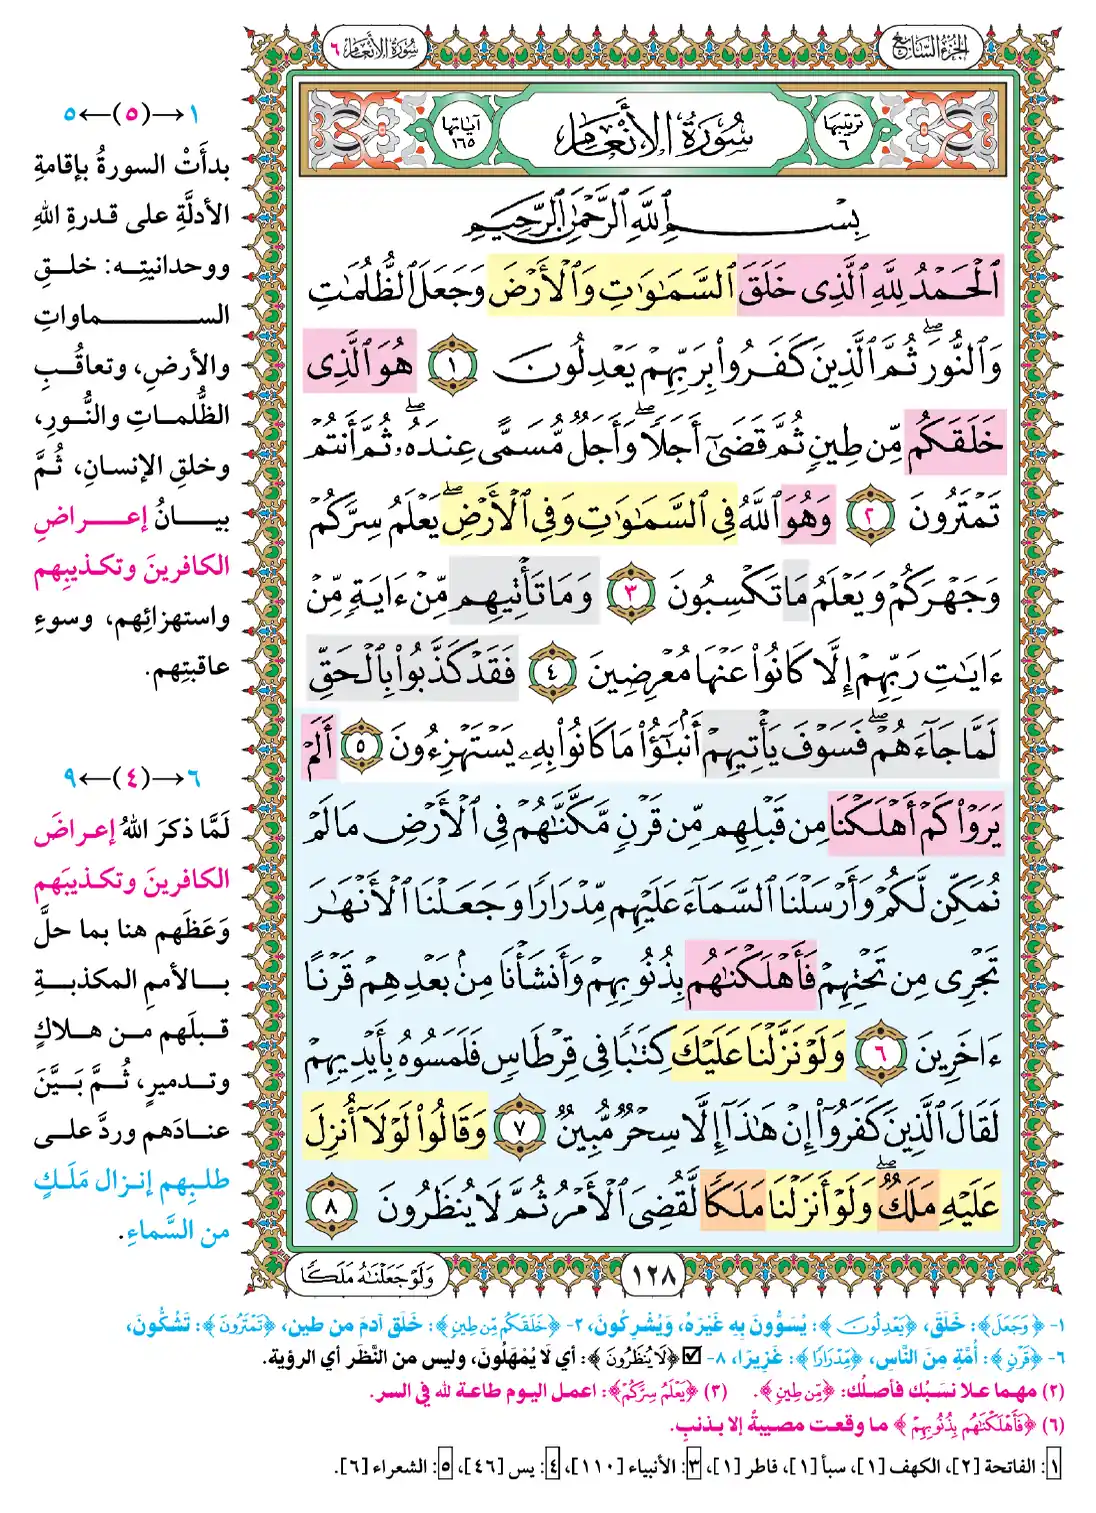 الجزء السابع
سورة الأنعام ٦
ترتيبها ٦
سُورَةُ الأَنْعَامِ
آياتها ١٦٥
بِسْمِ ٱللَّهِ ٱلرَّحْمَٰنِ ٱلرَّحِيمِ
ٱلْحَمْدُ لِلَّهِ ٱلَّذِى خَلَقَ ٱلسَّمَٰوَٰتِ وَٱلْأَرْضَ وَجَعَلَ ٱلظُّلُمَٰتِ
وَٱلنُّورَ ۖ ثُمَّ ٱلَّذِينَ كَفَرُوا۟ بِرَبِّهِمْ يَعْدِلُونَ ١ هُوَ ٱلَّذِى
خَلَقَكُم مِّن طِينٍ ثُمَّ قَضَىٰٓ أَجَلًا ۖ وَأَجَلٌ مُّسَمًّى عِندَهُۥ ۖ ثُمَّ أَنتُمْ
تَمْتَرُونَ ٢ وَهُوَ ٱللَّهُ فِى ٱلسَّمَٰوَٰتِ وَفِى ٱلْأَرْضِ ۖ يَعْلَمُ سِرَّكُمْ
وَجَهْرَكُمْ وَيَعْلَمُ مَا تَكْسِبُونَ ٣ وَمَا تَأْتِيهِم مِّنْ ءَايَةٍ مِّنْ
ءَايَٰتِ رَبِّهِمْ إِلَّا كَانُوا۟ عَنْهَا مُعْرِضِينَ ٤ فَقَدْ كَذَّبُوا۟ بِٱلْحَقِّ
لَمَّا جَآءَهُمْ ۖ فَسَوْفَ يَأْتِيهِمْ أَنۢبَٰٓؤُا۟ مَا كَانُوا۟ بِهِۦ يَسْتَهْزِءُونَ ٥ أَلَمْ
يَرَوْا۟ كَمْ أَهْلَكْنَا مِن قَبْلِهِم مِّن قَرْنٍ مَّكَّنَّٰهُمْ فِى ٱلْأَرْضِ مَا لَمْ
نُمَكِّن لَّكُمْ وَأَرْسَلْنَا ٱلسَّمَآءَ عَلَيْهِم مِّدْرَارًا وَجَعَلْنَا ٱلْأَنْهَٰرَ
تَجْرِى مِن تَحْتِهِمْ فَأَهْلَكْنَٰهُم بِذُنُوبِهِمْ وَأَنشَأْنَا مِنۢ بَعْدِهِمْ قَرْنًا
ءَاخَرِينَ ٦ وَلَوْ نَزَّلْنَا عَلَيْكَ كِتَٰبًا فِى قِرْطَاسٍ فَلَمَسُوهُ بِأَيْدِيهِمْ
لَقَالَ ٱلَّذِينَ كَفَرُوٓا۟ إِنْ هَٰذَآ إِلَّا سِحْرٌ مُّبِينٌ ٧ وَقَالُوا۟ لَوْلَآ أُنزِلَ
عَلَيْهِ مَلَكٌ ۖ وَلَوْ أَنزَلْنَا مَلَكًا لَّقُضِىَ ٱلْأَمْرُ ثُمَّ لَا يُنظَرُونَ ٨
١٢٨
وَلَوْ جَعَلْنَٰهُ مَلَكًا
١→(٥)←٥
بدأَتْ السورةُ بإقامةِ
الأدلَّةِ على قدرةِ اللهِ
ووحدانيتِه: خلقِ
السماواتِ
والأرضِ، وتعاقُبِ
الظُّلماتِ والنُّورِ،
وخلقِ الإنسانِ، ثُمَّ
بيانُ إعراضِ
الكافرينَ وتكذيبِهم
واستهزائِهم، وسوءِ
عاقبتِهم.
٦→(٤)←٩
لَمَّا ذكرَ اللهُ إعراضَ
الكافرينَ وتكذيبَهم
وَعَظَهم هنا بما حلَّ
بالأممِ المكذبةِ
قبلَهم من هلاكٍ
وتدميرٍ، ثُمَّ بَيَّنَ
عنادَهم وردَّ على
طلبِهم إنزال مَلَكٍ
من السَّماءِ.
١- ﴿وَجَعَلَ﴾: خَلَقَ، ﴿يَعْدِلُونَ﴾: يُسَوُّونَ بِهِ غَيْرَهُ، وَيُشْرِكُونَ، ٢- ﴿خَلَقَكُم مِّن طِينٍ﴾: خَلَقَ آدمَ من طين، ﴿تَمْتَرُونَ﴾: تَشُكُّونَ،
٦- ﴿قَرْنٍ﴾: أُمَّةٍ مِنَ النَّاسِ، ﴿مِّدْرَارًا﴾: غَزِيرًا، ٨- ☑ ﴿لَا يُنظَرُونَ﴾: أي لَا يُمْهَلُونَ، وليس من النَّظَر أي الرؤية.
(٢) مهما علا نسَبُك فأصلُك: ﴿مِّن طِينٍ﴾. (٣) ﴿يَعْلَمُ سِرَّكُمْ﴾: اعمل اليوم طاعة لله في السر.
(٦) ﴿فَأَهْلَكْنَٰهُم بِذُنُوبِهِمْ﴾ ما وقعت مصيبةٌ إلا بذنبٍ.
١: الفاتحة [٢]، الكهف [١]، سبأ [١]، فاطر [١]، ٣: الأنبياء [١١٠]، ٤: يس [٤٦]، ٥: الشعراء [٦].